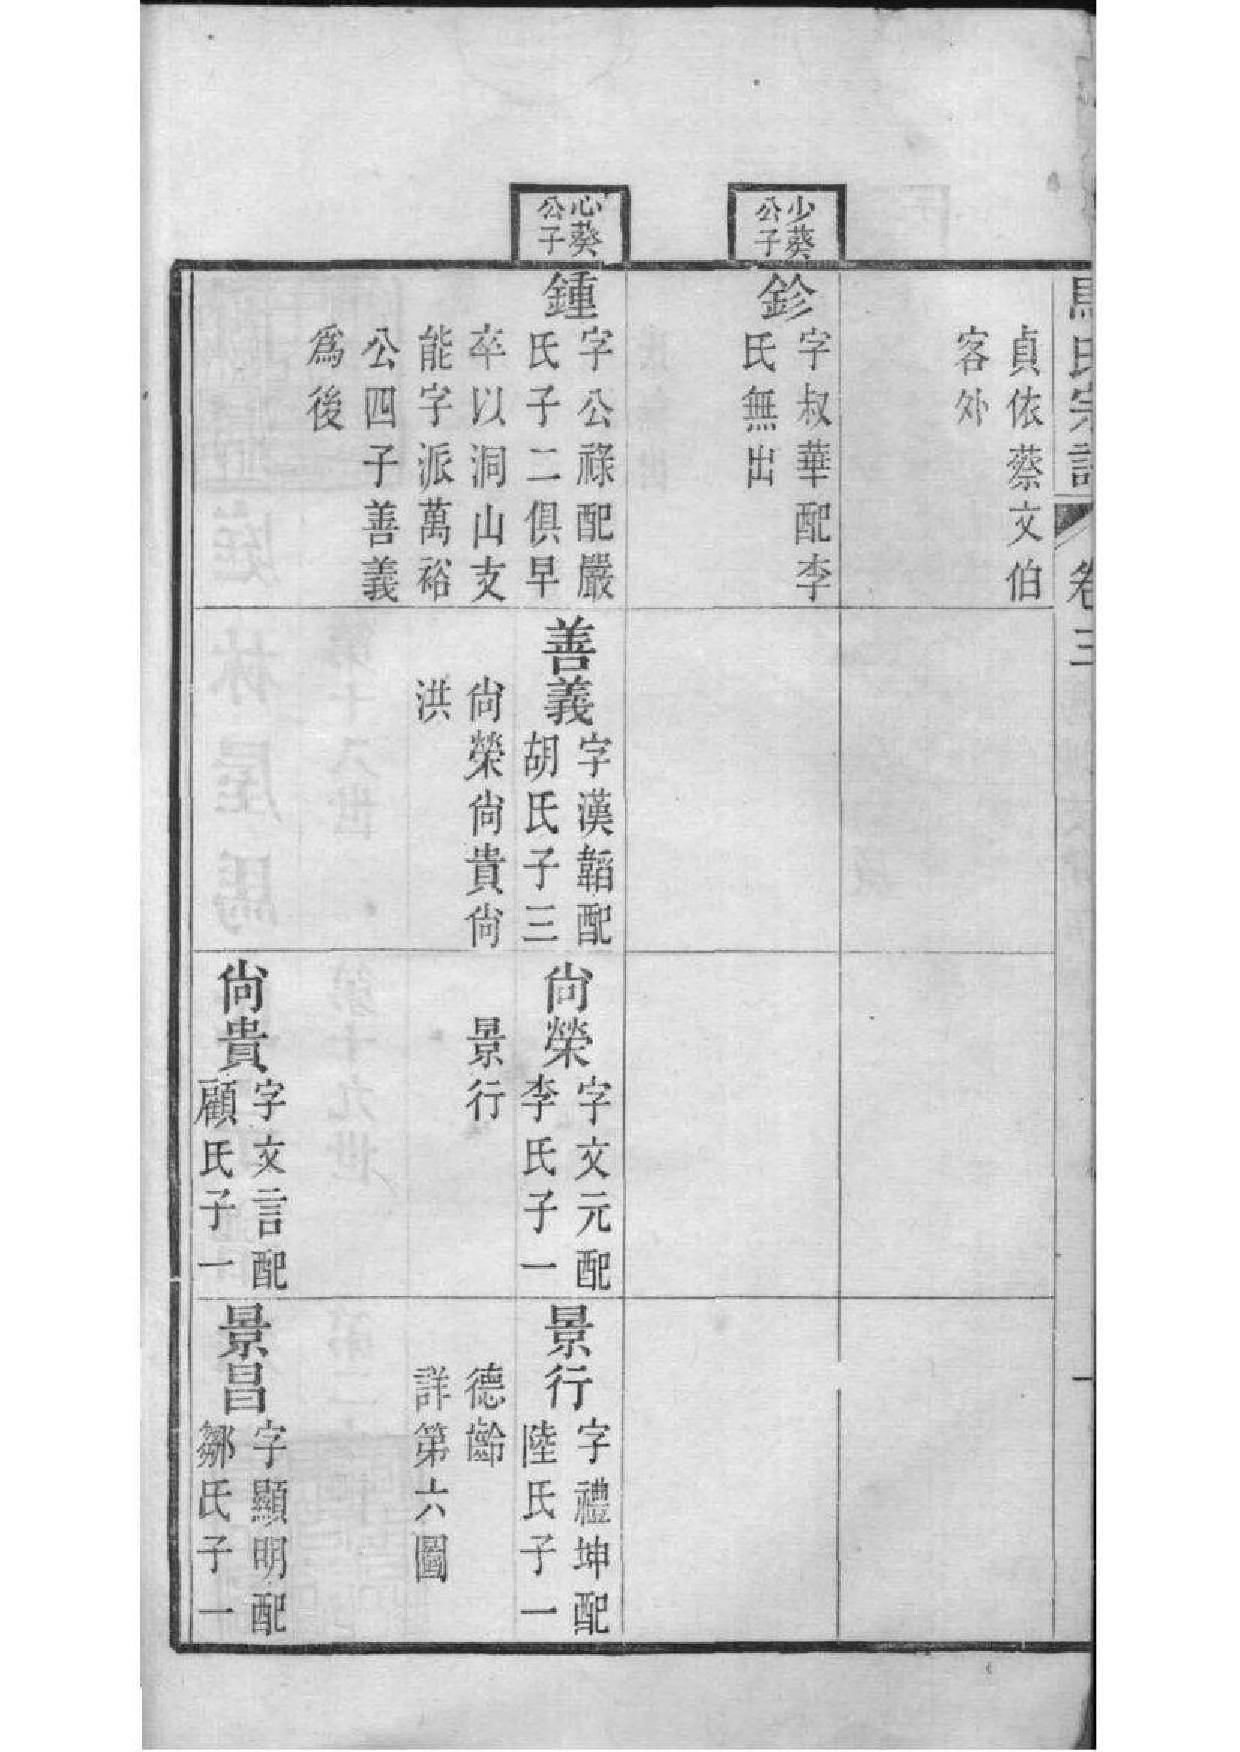 馬氏宗譜
卷三
一
貞依蔡文伯
客外
少葵
公子
鉁
字叔華配李
氏無出
心葵
公子
鍾
字公祿配嚴
氏子二俱早
卒以洞山支
能字派萬裕
公四子善義
爲後
善義
字漢韜配
胡氏子三
尙榮尙貴尙
洪
尙榮
字文元配
李氏子一
景行
尙貴
字文言配
顧氏子一
景行
字禮坤配
陸氏子一
德齡
詳第六圖
景昌
字顯明配
鄒氏子一